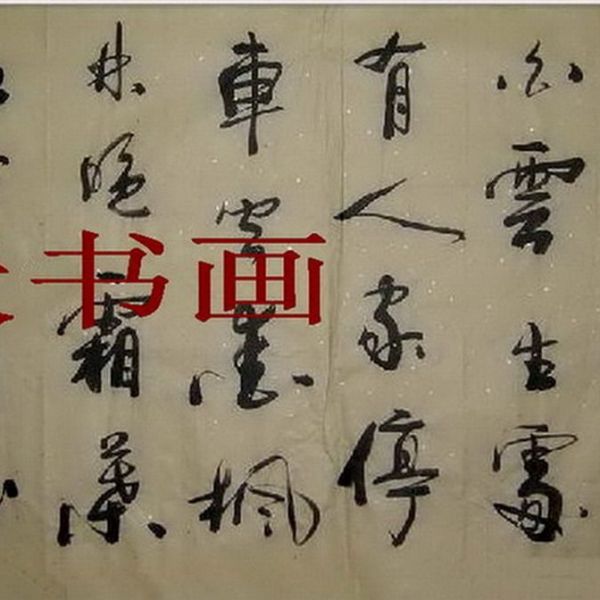 白雲生處
有人家停
車坐愛楓
林晚霜葉
书画